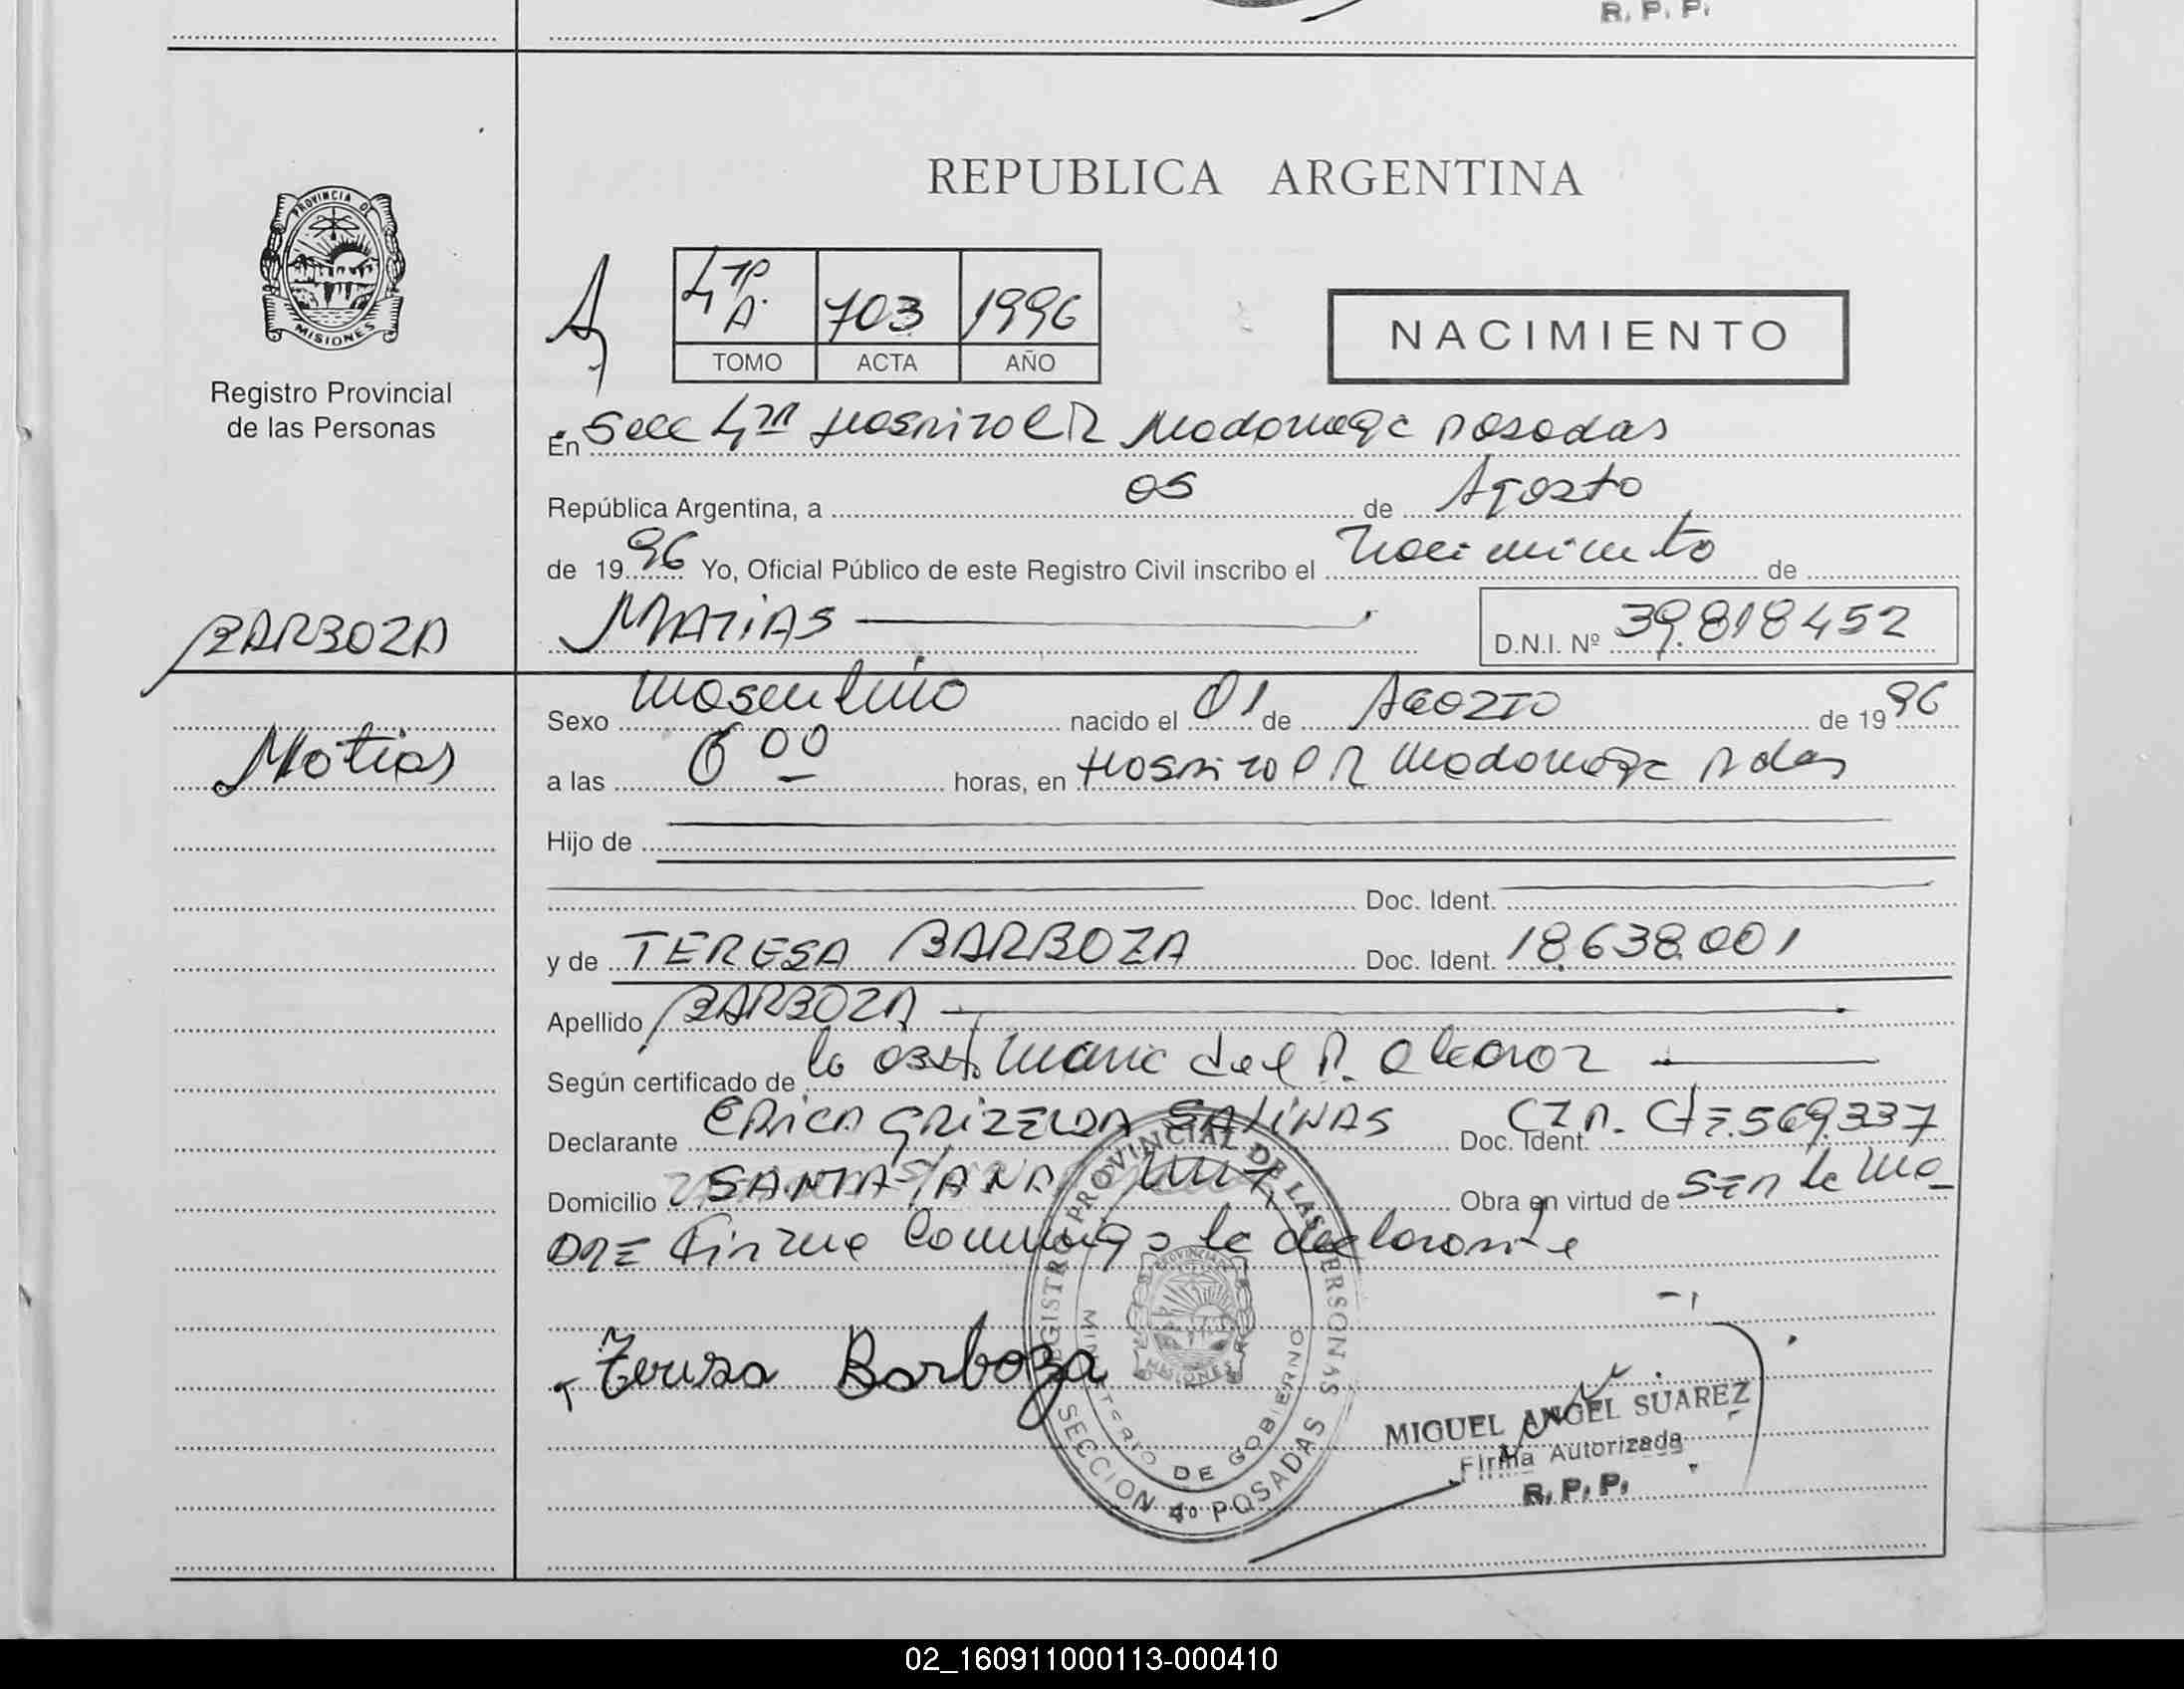 R. P. P.
REPUBLICA ARGENTINA
PROVINCIA DE
MISIONES
Registro Provincial
de las Personas
4ta A. 703 1996
TOMO ACTA AÑO
NACIMIENTO
En Secc 4ta Hospital R Madariaga Posadas
República Argentina, a 05 de Agosto
de 1996 Yo, Oficial Público de este Registro Civil inscribo el Nacimiento de
BARBOZA
MATIAS D.N.I. Nº 39.818452
Matias
Sexo Masculino nacido el 01 de AGOSTO de 1996
a las 6 00 horas, en Hospital R Madariaga Pdas
Hijo de
Doc. Ident.
y de TERESA BARBOZA Doc. Ident. 18.638.001
Apellido BARBOZA
Según certificado de la Obst. Maria del P.
Declarante ERICA GRIZELDA SALINAS Doc. Ident. 569.337
Domicilio SANTA ANA Mnes Obra en virtud de SER la Ma_
DRE Firma Conmigo la declarante
Teresa Barboza
REGISTRO PROVINCIAL DE LAS PERSONAS
MINISTERIO DE GOBIERNO
PROVINCIA
MISIONES
SECCION 4º POSADAS
MIGUEL ANGEL SUAREZ
Firma Autorizada
R. P. P.
02_160911000113-000410